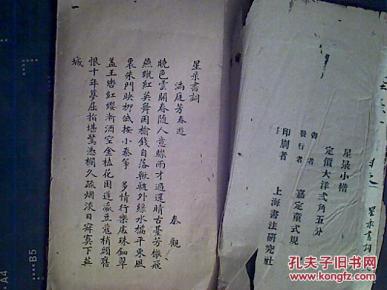 星彔書詞
滿庭芳春遊
秦觀
曉色雲開春隨人意驟雨才過還晴古臺芳榭飛
燕蹴紅英舞困榆錢自落鞦韆外綠水橋平東風
裏朱門映柳低按小秦箏 多情行樂處珠鈿翠
蓋玉轡紅纓漸酒空金榼花困蓬瀛豆蔻梢頭舊
恨十年夢屈指堪驚憑欄久疏煙淡日寂寞下蕪
城
星彔小楷
定價大洋弍角五分
書者
發行者
嘉定童式規
印刷者
上海書法研究社
A4
B5
孔夫子旧书网